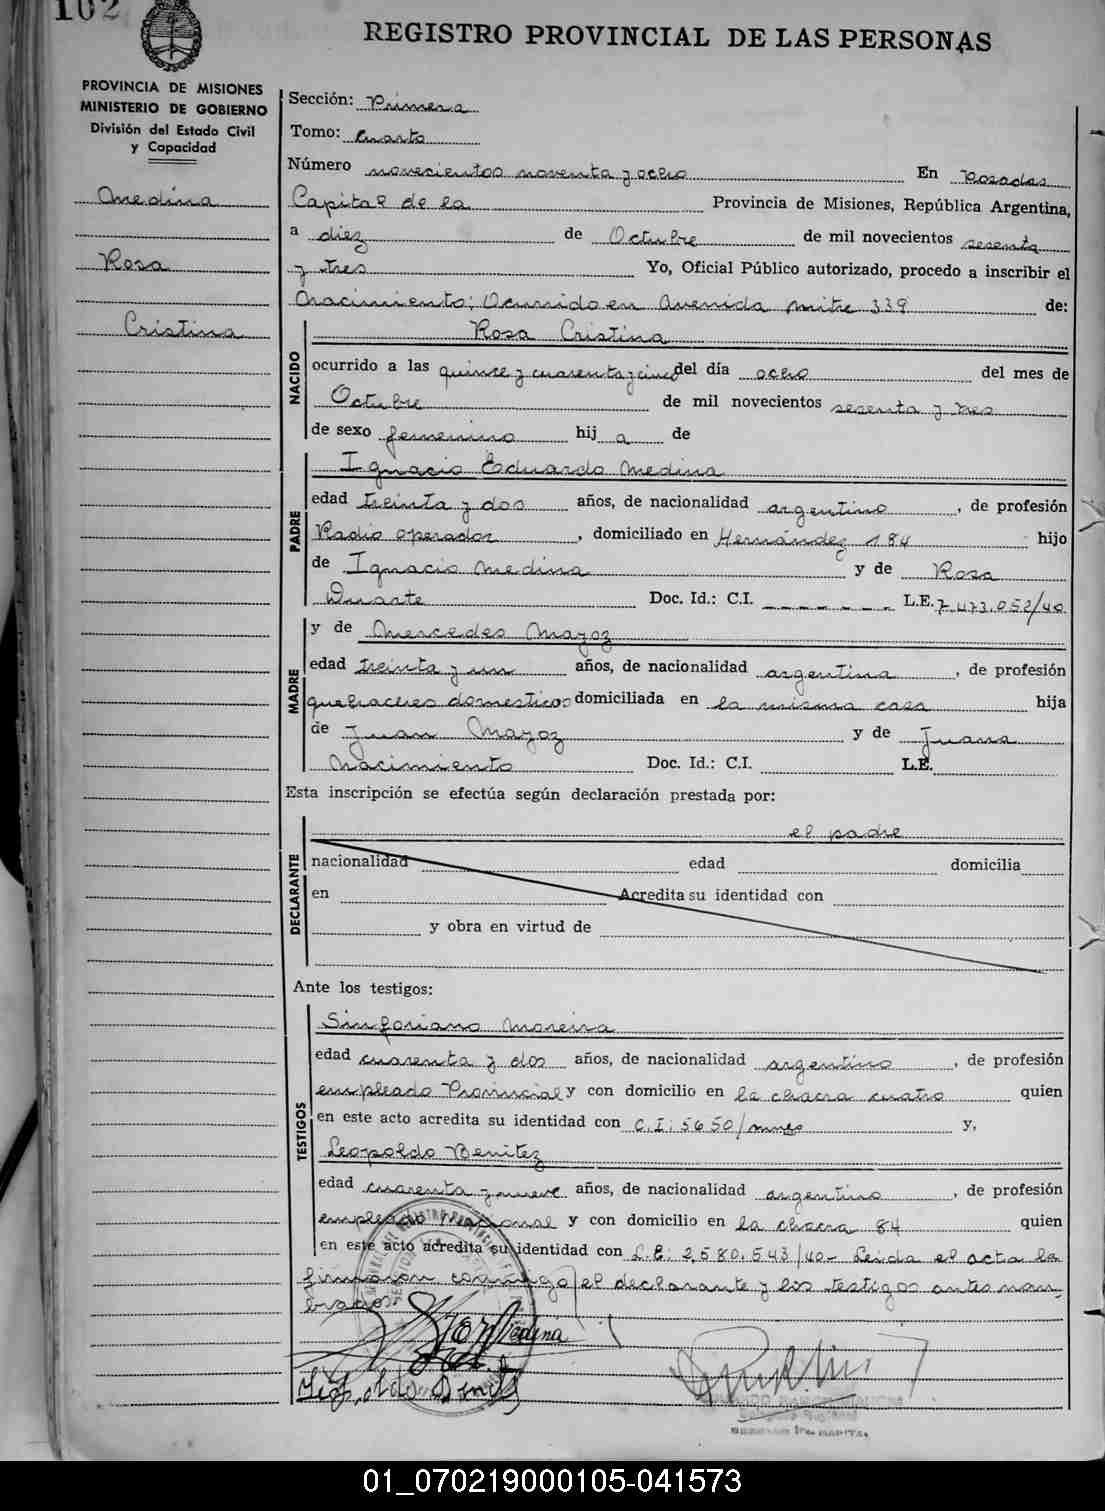 102
REGISTRO PROVINCIAL DE LAS PERSONAS
PROVINCIA DE MISIONES
MINISTERIO DE GOBIERNO
División del Estado Civil
y Capacidad
Medina
Rosa
Cristina
Sección: Primera
Tomo: Cuarto
Número novecientos noventa y ocho En Posadas
Capital de la Provincia de Misiones, República Argentina,
a diez de Octubre de mil novecientos sesenta
y tres Yo, Oficial Público autorizado, procedo a inscribir el
Nacimiento; Ocurrido en Avenida Mitre 339 de:
NACIDO
Rosa Cristina
ocurrido a las quince y cuarenta y cinco del día ocho del mes de
Octubre de mil novecientos sesenta y tres
de sexo femenino hij a de
PADRE
Ignacio Eduardo Medina
edad treinta y dos años, de nacionalidad argentino, de profesión
Radio operador, domiciliado en Hernández 184 hijo
de Ignacio Medina y de Rosa
Duarte Doc. Id.: C.I. - - - - - - - L.E. 7.473.052/40
MADRE
y de Mercedes Mayoz
edad treinta y un años, de nacionalidad argentina, de profesión
quehaceres domesticos domiciliada en la misma casa hija
de Juan Mayoz y de Juana
Nacimiento Doc. Id.: C.I. L.E.
Esta inscripción se efectúa según declaración prestada por:
DECLARANTE
el padre
nacionalidad edad domicilia
en Acredita su identidad con
y obra en virtud de
Ante los testigos:
TESTIGOS
Sinforiano Moreira
edad cuarenta y dos años, de nacionalidad argentino, de profesión
empleado Provincial y con domicilio en la chacra cuatro quien
en este acto acredita su identidad con C.I: 5650/mnes y,
Leopoldo Benitez
edad cuarenta y nueve años, de nacionalidad argentino, de profesión
empleado Nacional y con domicilio en la chacra 84 quien
en este acto acredita su identidad con L.E: 2,580.543/40- Leida el acta la
firmaron conmigo el declarante y los testigos antes nom-
brados.
Medina
01_070219000105-041573